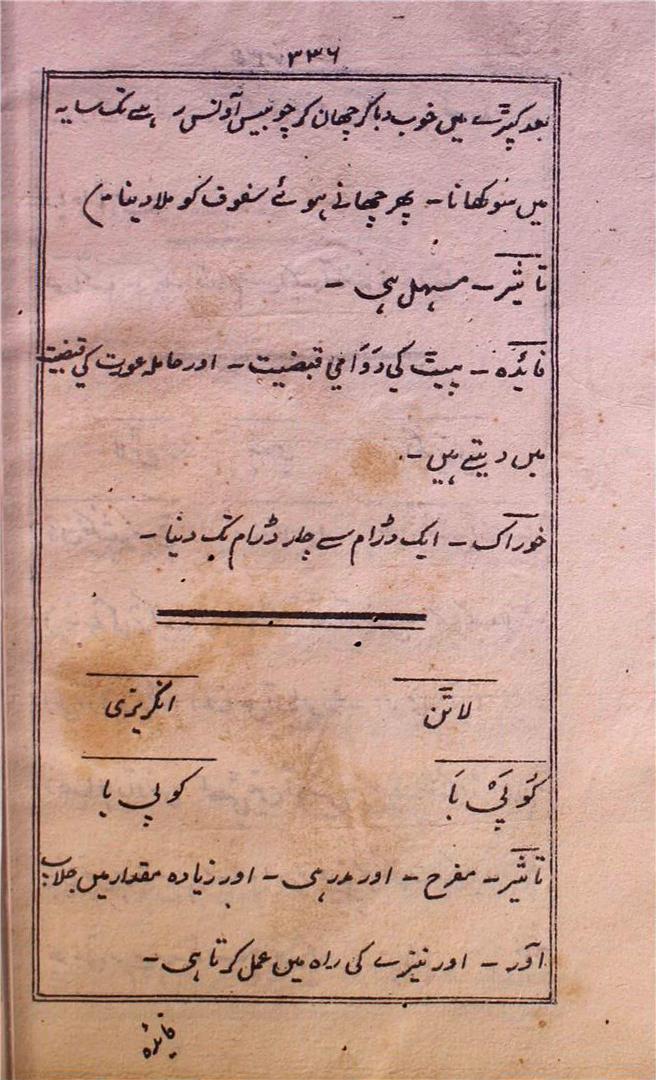 ۳۳۶
بعد کپڑے میں خوب دبا کر چھان کر چوبیس آونس رہے تک سایہ
میں سوکھانا - پھر چھانے ہوئے سفوف کو ملا دینا
تاثیر - مسہل ہی -
فائدہ - پیٹ کی دوامی قبضیت - اور حاملہ عورت کی قبضیت
میں دیتے ہیں -
خوراک - ایک ڈرام سے چار ڈرام تک دینا -
لاٹن انگریزی
کَوپَیْ بَا کوپی با
تاثیر - مفرح - اور مدر ہی - اور زیادہ مقدار میں جلاب
آور - اور نیزے کی راہ میں عمل کرتا ہی -
فائدہ